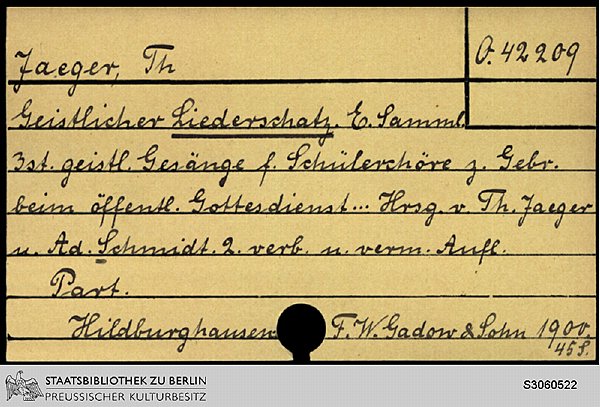 Jaeger, Th
O. 42209
Geistlicher Liederschatz. E. Samml.
3st. geistl. Gesänge f. Schülerchöre z. Gebr.
beim öffentl. Gottesdienst... Hrsg. v. Th. Jaeger
u. Ad. Schmidt. 2. verb. u. verm. Aufl.
Part.
Hildburghausen F. W. Gadow & Sohn 1900.
45 S.
STAATSBIBLIOTHEK ZU BERLIN
PREUSSISCHER KULTURBESITZ
S3060522